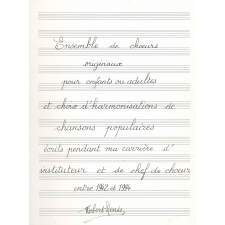 Ensemble de chœurs
originaux
pour enfants ou adultes
et choix d'harmonisations de
chansons populaires
écrits pendant ma carrière d'
instituteur et de chef de chœur
entre 1942 et 1984
Robert Denis